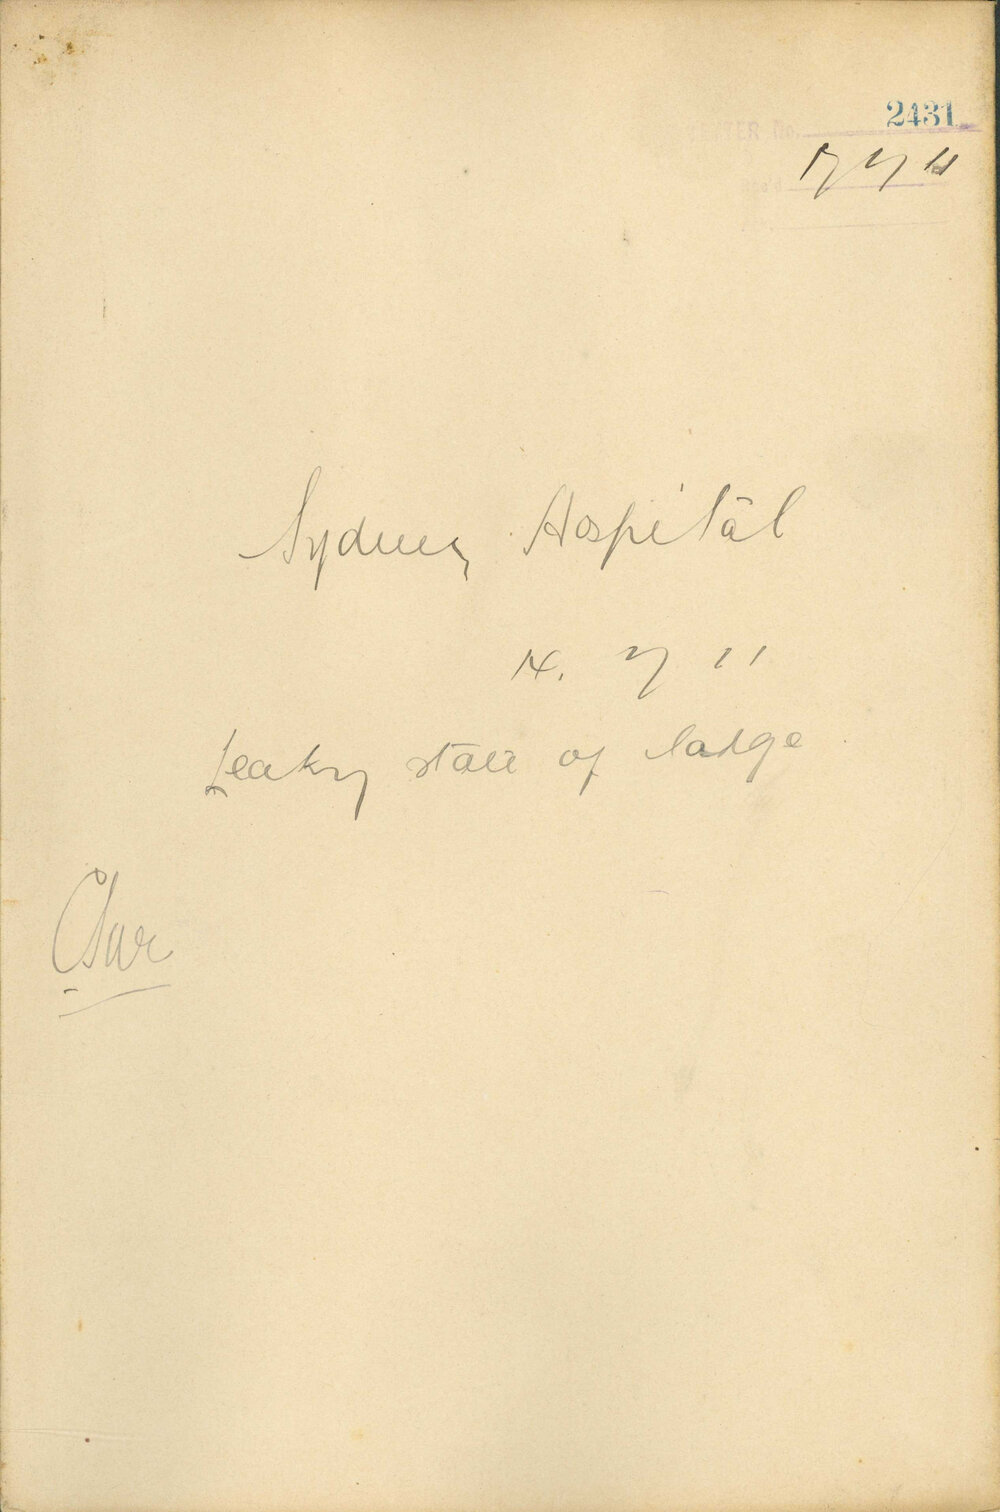 2431
LETTER No.
17 7 11
Rec'd
Sydney Hospital
14. 7 11
Leaky state of lodge